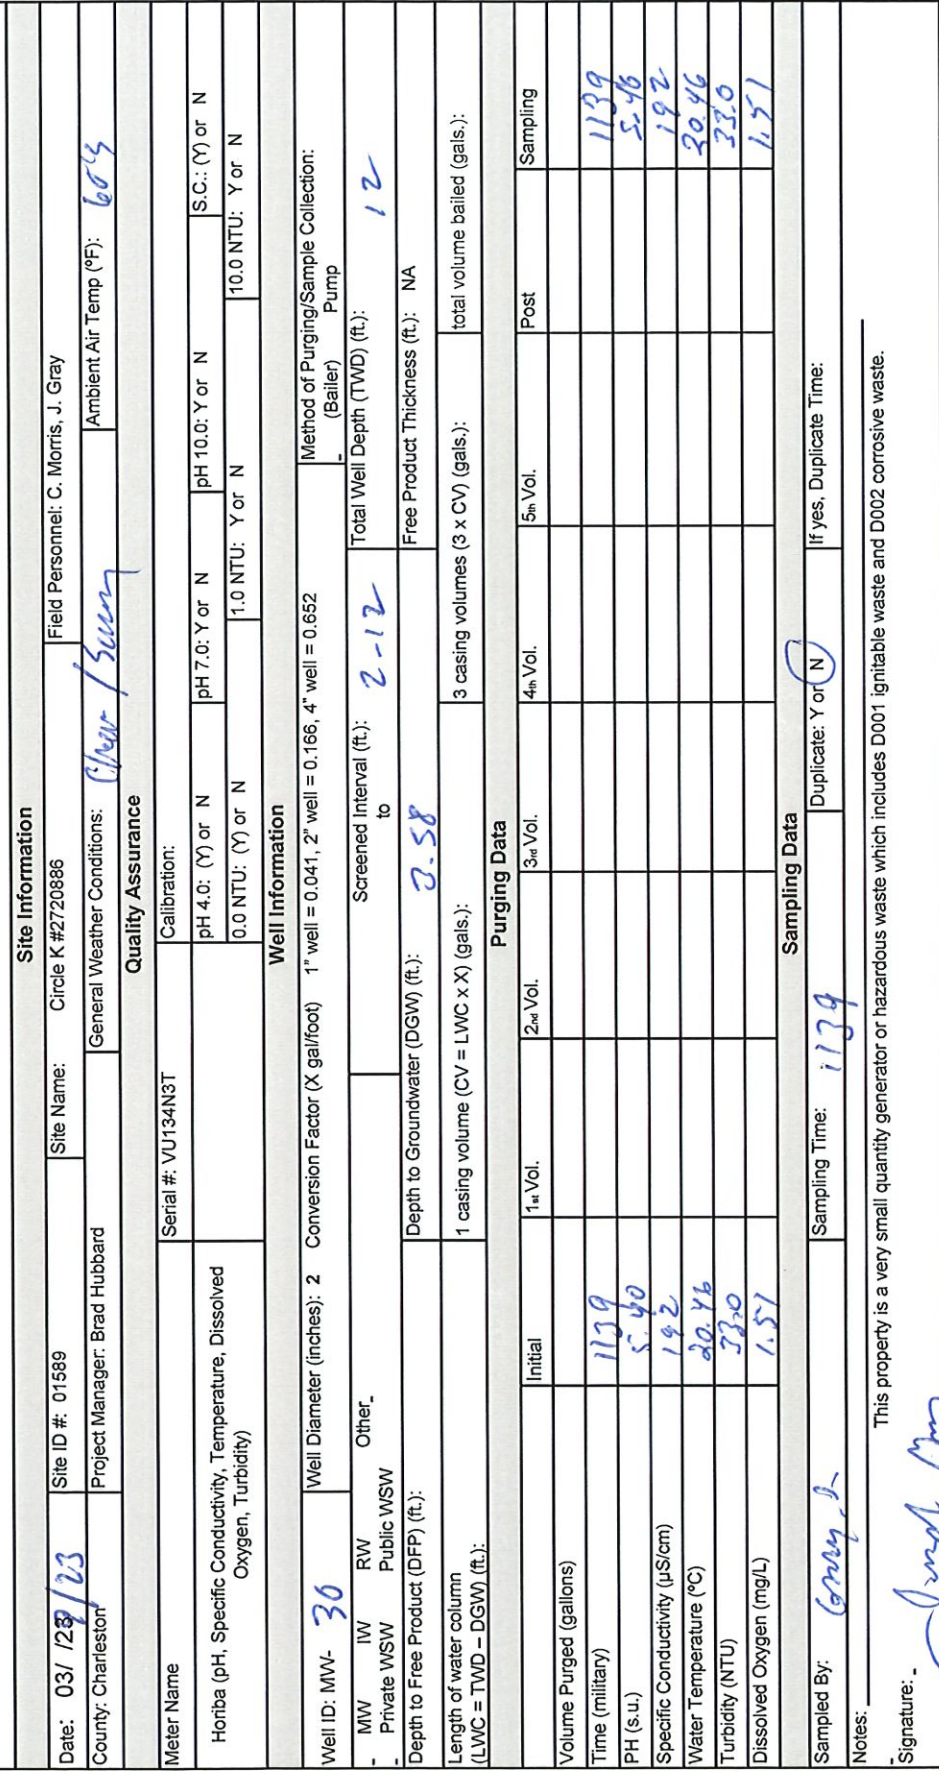 Site Information
Date: 03/ /23 Site ID #: 01589 Site Name: Circle K #2720886 Field Personnel: C. Morris, J. Gray
County: Charleston Project Manager: Brad Hubbard General Weather Conditions: Clear / Sunny Ambient Air Temp (°F): 60's
Quality Assurance
Meter Name Serial #: VU134N3T Calibration:
Horiba (pH, Specific Conductivity, Temperature, Dissolved pH 4.0: (Y) or N pH 7.0: Y or N pH 10.0: Y or N S.C.: (Y) or N
Oxygen, Turbidity) 0.0 NTU: (Y) or N 1.0 NTU: Y or N 10.0 NTU: Y or N
Well Information
Well ID: MW- 30 Well Diameter (inches): 2 Conversion Factor (X gal/foot) 1" well = 0.041, 2" well = 0.166, 4" well = 0.652 Method of Purging/Sample Collection:
_ (Bailer) Pump
_ MW IW RW Other_ Screened Interval (ft.): 2-12 Total Well Depth (TWD) (ft.): 12
_ Private WSW Public WSW to
Depth to Free Product (DFP) (ft.): Depth to Groundwater (DGW) (ft.): 3.58 Free Product Thickness (ft.): NA
Length of water column
(LWC = TWD – DGW) (ft.): 1 casing volume (CV = LWC x X) (gals.): 3 casing volumes (3 x CV) (gals.): total volume bailed (gals.):
Purging Data
Initial 1st Vol. 2nd Vol. 3rd Vol. 4th Vol. 5th Vol. Post Sampling
Volume Purged (gallons)
Time (military) 1139 1139
PH (s.u.) 5.40 5.40
Specific Conductivity (µS/cm) 192 192
Water Temperature (°C) 20.46 20.46
Turbidity (NTU) 33.0 33.0
Dissolved Oxygen (mg/L) 1.51 1.51
Sampling Data
Sampled By: Sampling Time: 1139 Duplicate: Y or N If yes, Duplicate Time:
Notes:
This property is a very small quantity generator or hazardous waste which includes D001 ignitable waste and D002 corrosive waste.
Signature: _